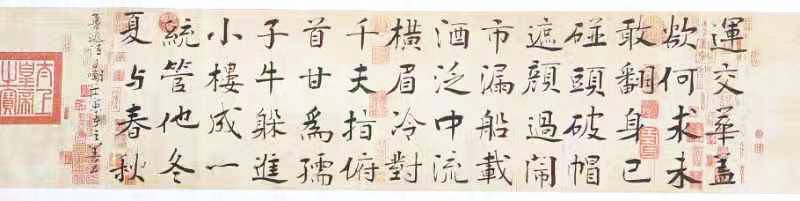 運交華蓋
欲何求未
敢翻身已
碰頭破帽
遮顔過鬧
市漏船載
酒泛中流
橫眉冷對
千夫指俯
首甘爲孺
子牛躲進
小樓成一
統管他冬
夏与春秋
魯迅
太上
皇帝
之寶